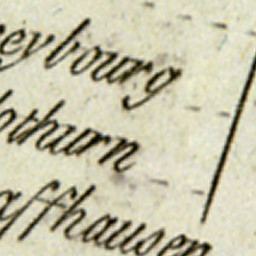 eybourg
lothurn
affhausen